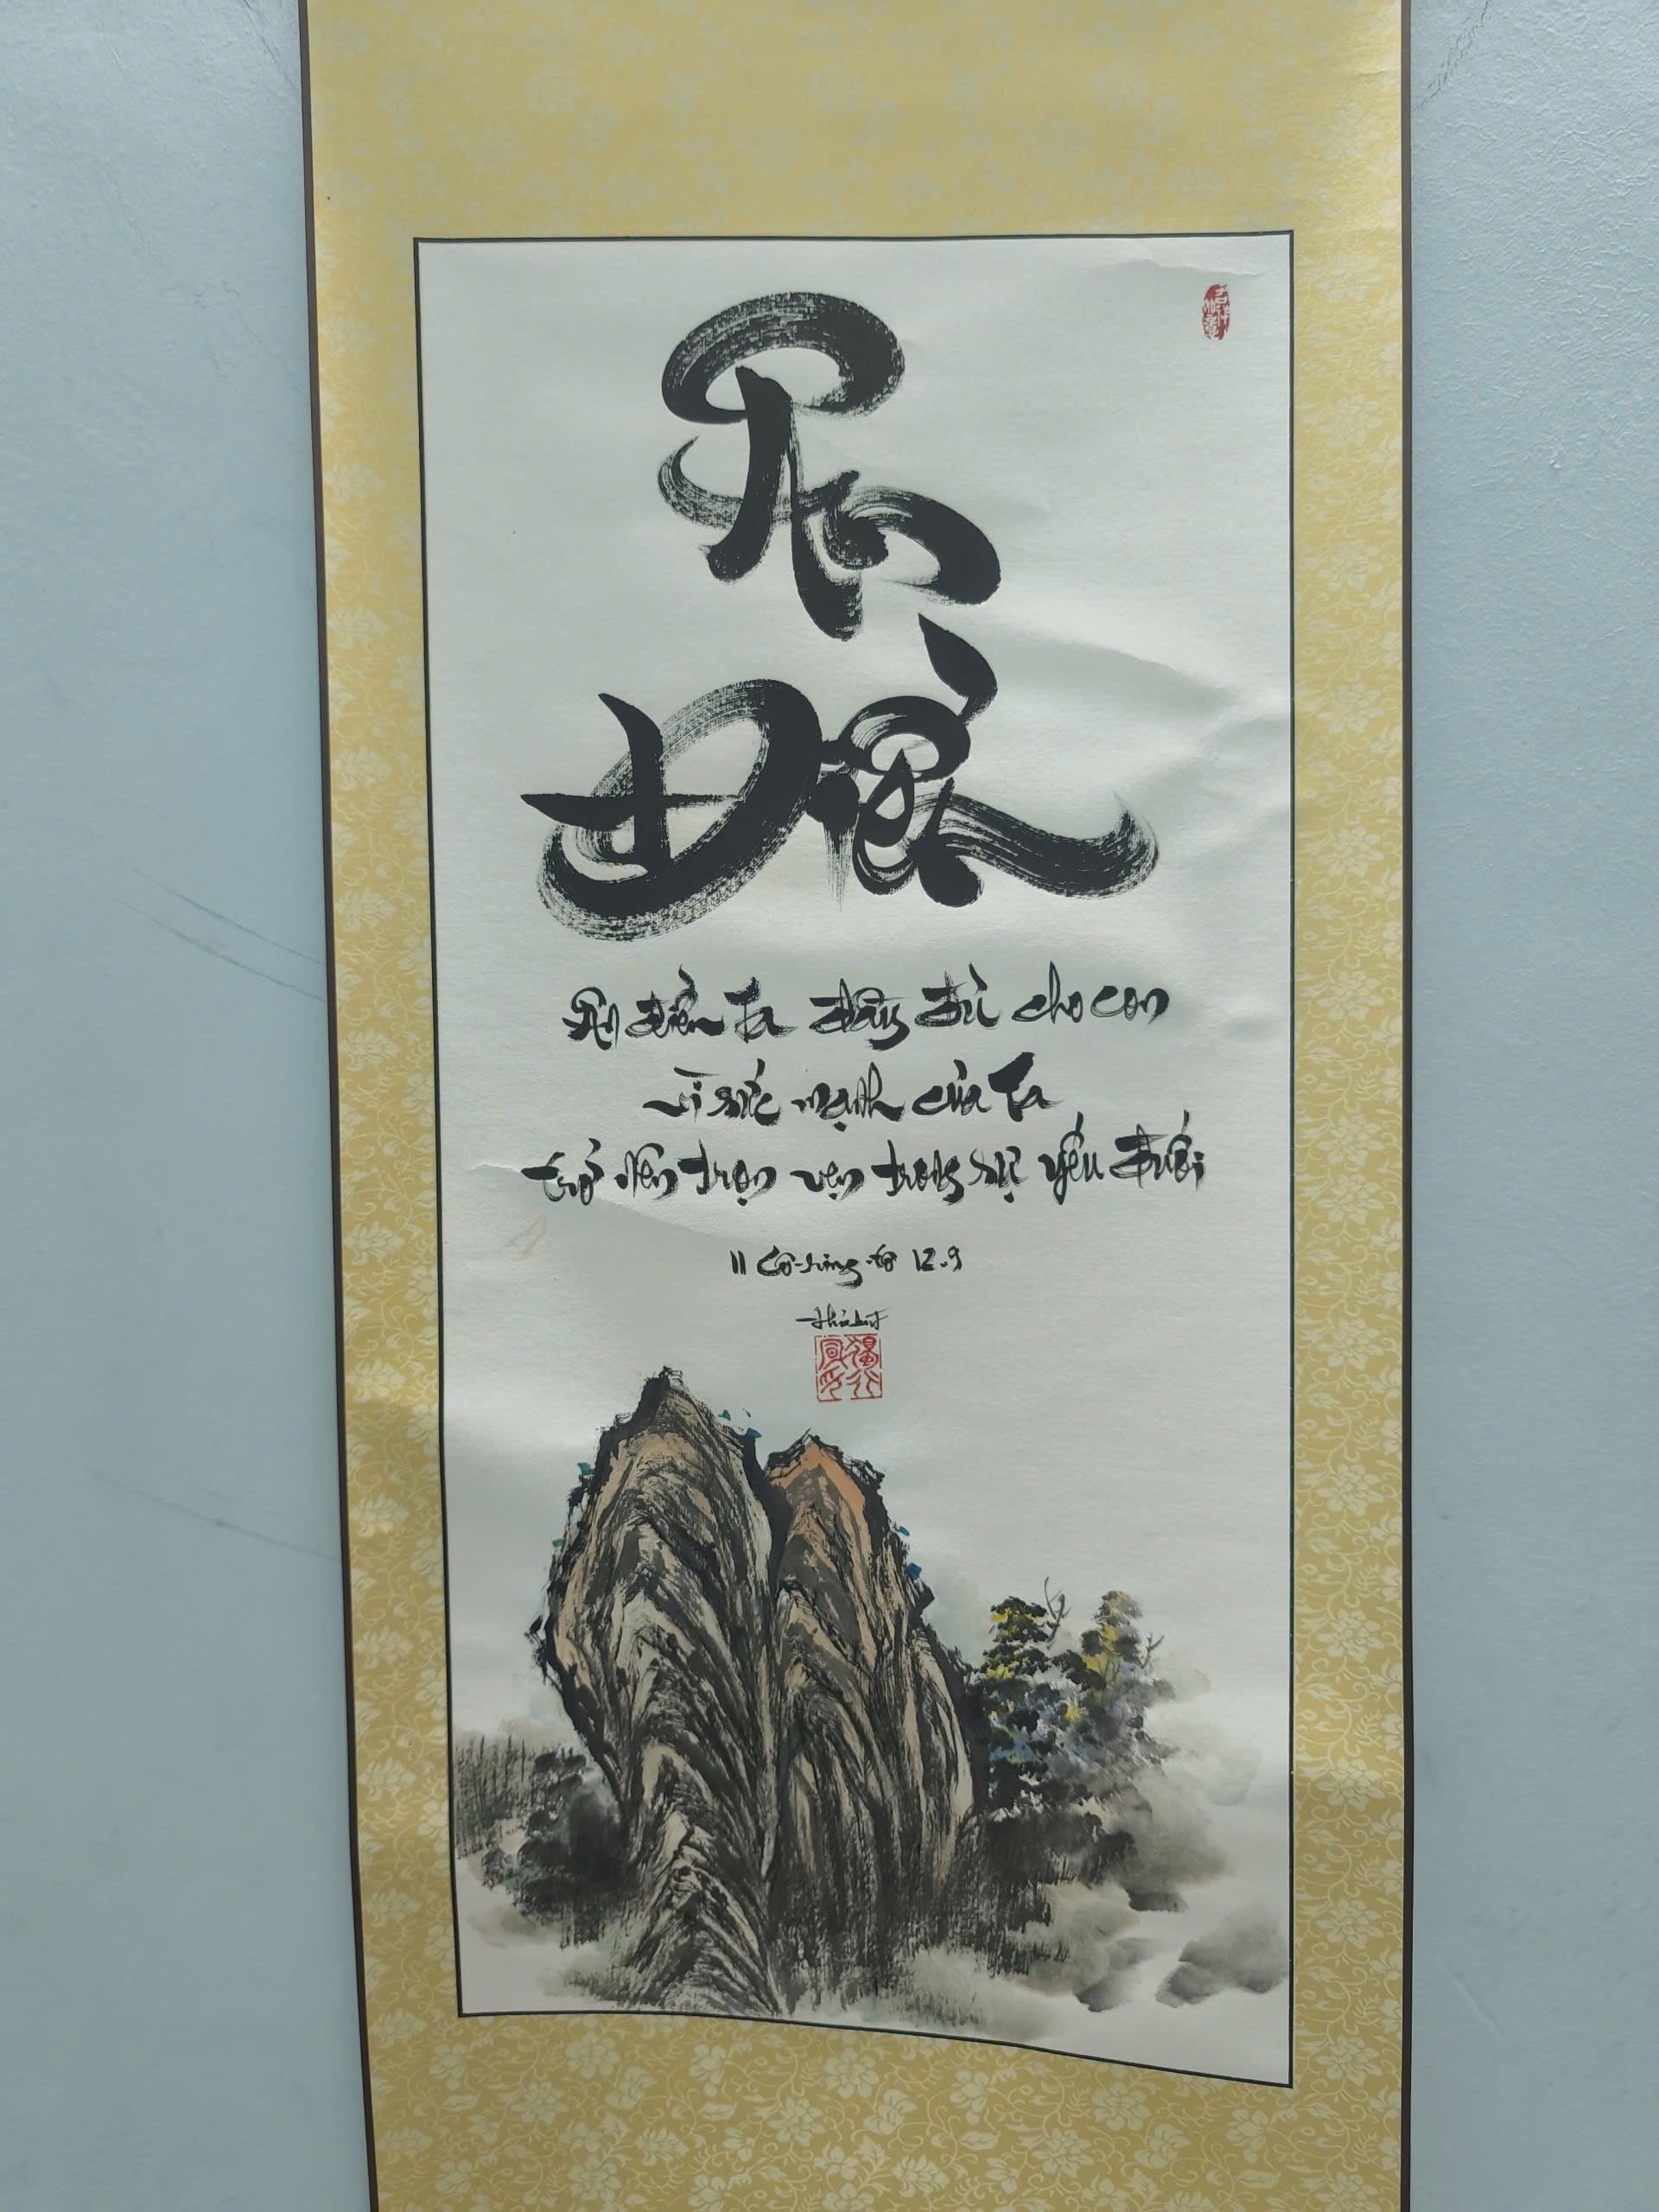 Ân
Điển
Ân điển Ta đầy đủ cho con
vì sức mạnh của Ta
trở nên trọn vẹn trong sự yếu đuối
II Cô-rinh-tô 12.9